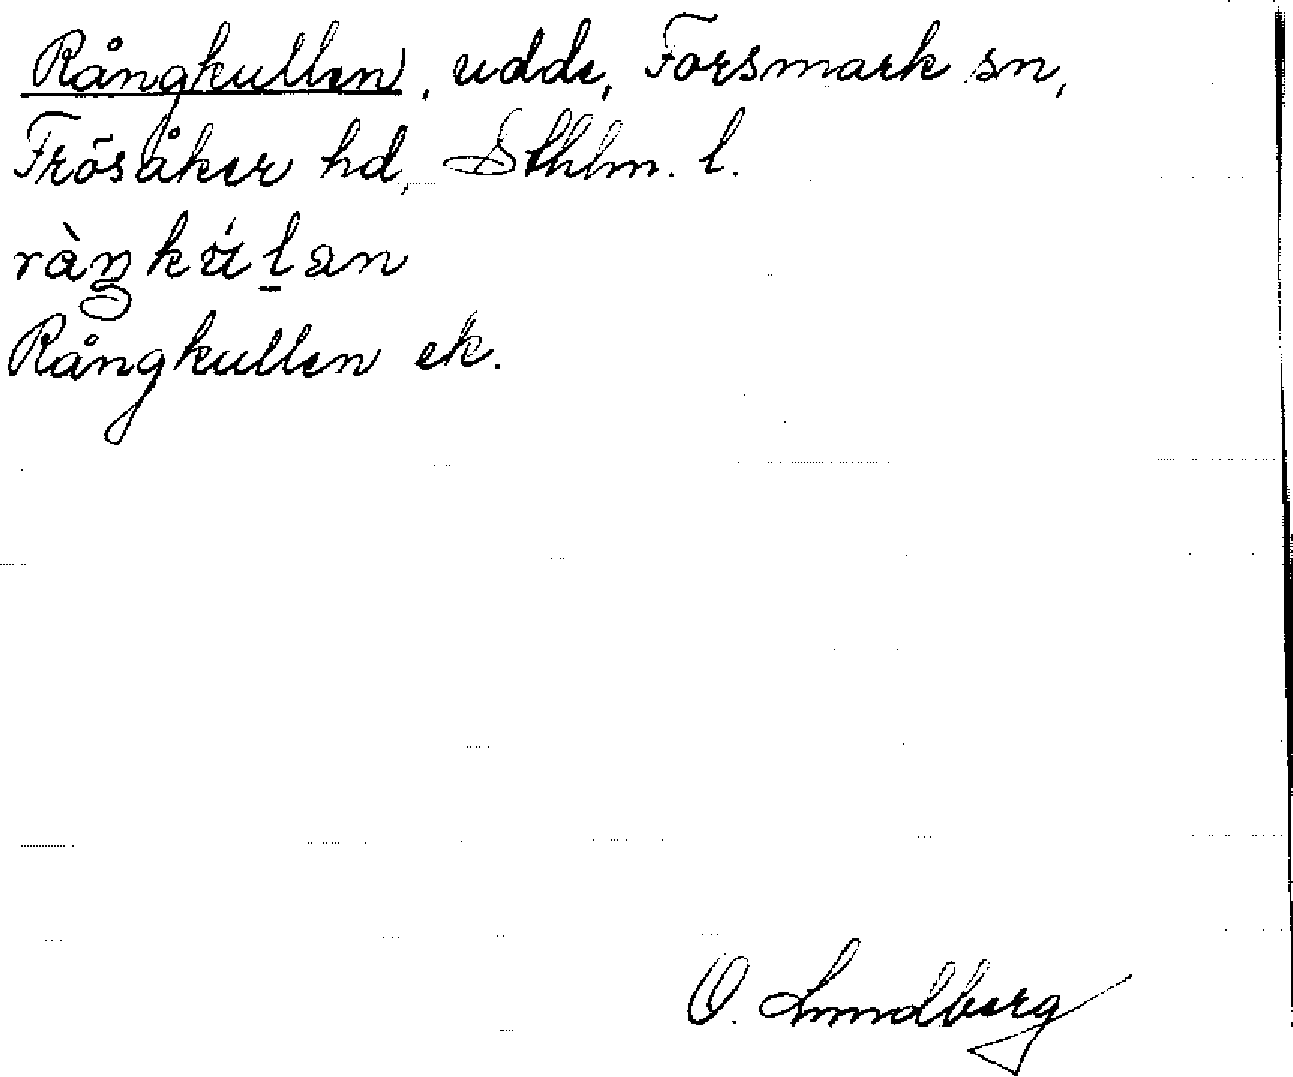 Rångkullen, udde, Forsmark sn,
Frösåker hd, Sthlm. l.
ràŋkúlan
Rångkullen ek.
O. Lundberg